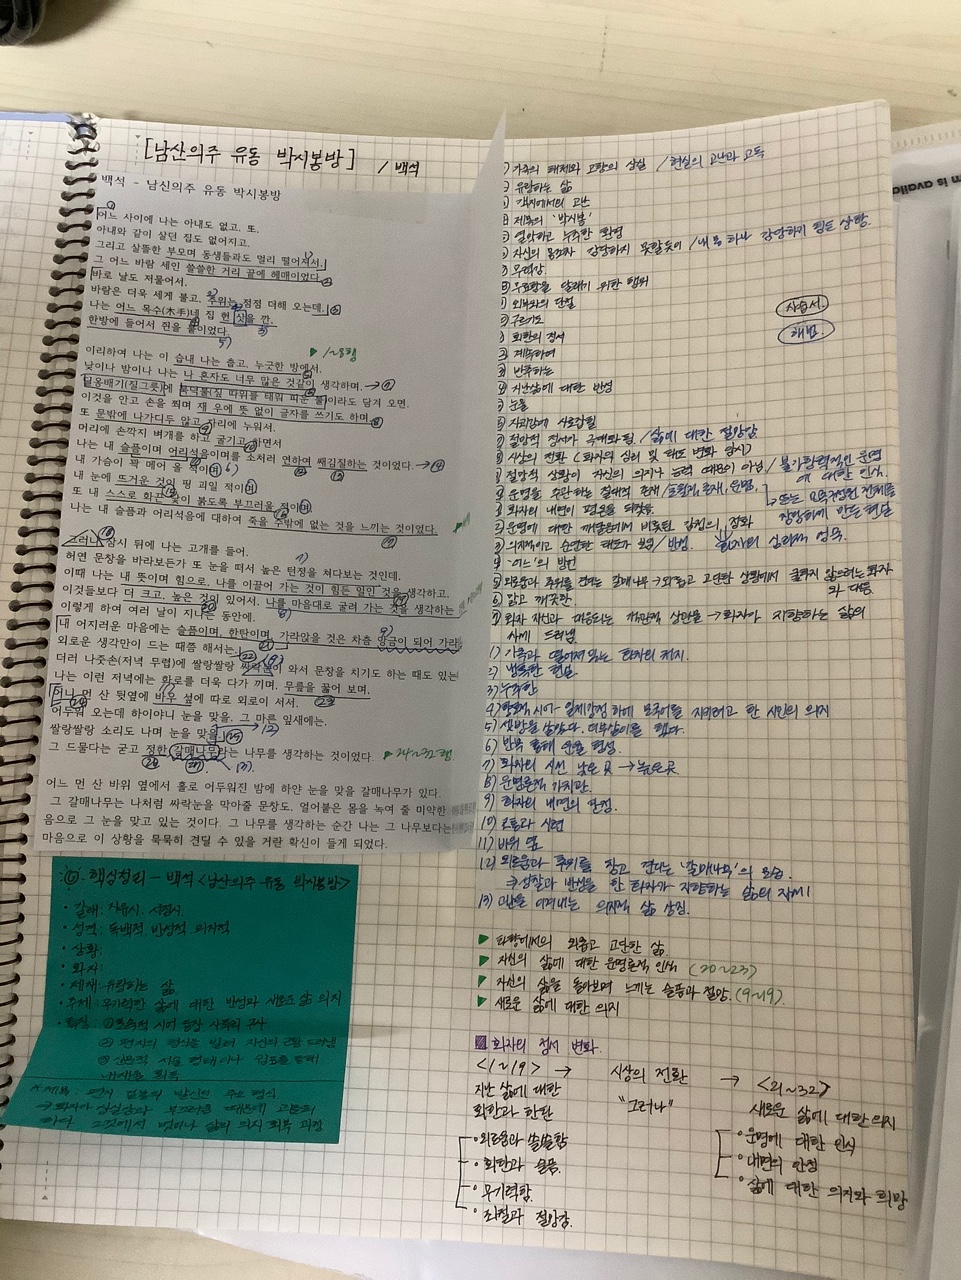 [남산의주 유동 박시봉방] / 백석
백석 - 남신의주 유동 박시봉방
어느 사이에 나는 아내도 없고. 또.
아내와 같이 살던 집도 없어지고.
그리고 살뜰한 부모며 동생들과도 멀리 떨어져서.
그 어느 바람 세인 쓸쓸한 거리 끝에 헤매이었다.
바로 날도 저물어서.
바람은 더욱 세게 불고. 추위는 점점 더해 오는데.
나는 어느 목수(木手)네 집 헌 삿을 깐.
한방에 들어서 쥔을 붙이었다.
▶ 1~8행
이리하여 나는 이 습내 나는 춥고. 누긋한 방에서.
낮이나 밤이나 나는 나 혼자도 너무 많은 것같이 생각하며.
딜옹배기(질그릇)에 북덕불(짚 따위를 태워 피운 불)이라도 담겨 오면.
이것을 안고 손을 쬐며 재 우에 뜻 없이 글자를 쓰기도 하며.
또 문밖에 나가디두 않고 자리에 누워서.
머리에 손깍지 벼개를 하고 굴기도 하면서
나는 내 슬픔이며 어리석음이며를 소처러 연하여 쌔김질하는 것이었다.
내 가슴이 꽉 메어 올 적이며
내 눈에 뜨거운 것이 핑 괴일 적이며
또 내 스스로 화끈 낯이 붉도록 부끄러울 적이며.
나는 내 슬픔과 어리석음에 대하여 죽을 수밖에 없는 것을 느끼는 것이었다.
그러나 잠시 뒤에 나는 고개를 들어.
허연 문창을 바라보든가 또 눈을 떠서 높은 턴정을 쳐다보는 것인데.
이때 나는 내 뜻이며 힘으로. 나를 이끌어 가는 것이 힘든 일인 것을 생각하고.
이것들보다 더 크고. 높은 것이 있어서. 나를 마음대로 굴려 가는 것을 생각하는
이렇게 하여 여러 날이 지나는 동안에.
내 어지러운 마음에는 슬픔이며. 한탄이며. 가라앉을 것은 차츰 앙금이 되어 가라
외로운 생각만이 드는 때쯤 해서는.
더러 나줏손(저녁 무렵)에 쌀랑쌀랑 싸락눈이 와서 문창을 치기도 하는 때도 있는
나는 이런 저녁에는 화로를 더욱 다가 끼며. 무릎을 꿇어 보며.
어니 먼 산 뒷옆에 바우 섶에 따로 외로이 서서.
어두워 오는데 하이야니 눈을 맞을. 그 마른 잎새에는.
쌀랑쌀랑 소리도 나며 눈을 맞을.
그 드물다는 굳고 정한 갈매나무라는 나무를 생각하는 것이었다.
▶ 24~32행
어느 먼 산 바위 옆에서 홀로 어두워진 밤에 하얀 눈을 맞을 갈매나무가 있다.
그 갈매나무는 나처럼 싸락눈을 막아줄 문창도. 얼어붙은 몸을 녹여 줄 미약한
음으로 그 눈을 맞고 있는 것이다. 그 나무를 생각하는 순간 나는 그 나무보다는
마음으로 이 상황을 묵묵히 견딜 수 있을 거란 확신이 들게 되었다.
핵심정리 - 백석 <남산의주 유동 박시봉방>
• 갈래: 자유시. 서정시.
• 성격: 독백적 반성적 의지적
• 상황:
• 화자:
• 제재: 유랑하는 삶
• 주제: 무기력한 삶에 대한 반성과 새로운 삶 의지
• 특징: ① 토속적 시어 등장 사투리 구사
② 편지의 형식을 빌려 자신의 근황 드러냄
③ 산문적 서술 형태이나 쉼표를 통해
내재율 획득
① 가족의 해체와 고향의 상실 / 현실의 고난과 고독
② 유랑하는 삶
③ 객지에서의 고난
④ 제목의 '박시봉'
⑤ 열악하고 누추한 환경
⑥ 자신의 몸조차 감당하지 못할듯이 / 내 몸 하나 감당하기 힘든 상황.
⑦ 무력감
⑧ 무료함을 달래기 위한 행위
⑨ 외부와의 단절
⑩ 구르기도
회한의 정서
계속하여
반추하는
지난삶에 대한 반성
눈물
자괴감에 사로잡힘
절망적 정서가 극에 달함. / 삶에 대한 절망감
시상의 전환 (화자의 심리 및 태도 변화 암시)
절망적 상황이 자신의 의지나 능력 때문이 아님 / 불가항력적인 운명에 대한 인식.
운명을 주관하는 절대적 존재 / 초월적 존재, 운명.
화자의 내면이 평온을 되찾음
운명에 대한 깨달음에서 비롯된 감정의 정화
의지적이고 순응한 태도가 보임 / 반성.
'어느'의 방언
외로움과 추위를 견디는 갈매나무 → 외롭고 고단한 상황에서 굴하지 않으려는 화자와 대응
맑고 깨끗한
화자 자신과 대응되는 객관적 상관물 → 화자가 지향하는 삶의
자세 드러냄
산십서.
해법
1) 가족과 떨어져 있는 화자의 처지.
2) 냉혹한 현실.
3) 누추한
4) 향토적 시어 - 일제강점 하에 모국어를 지키려고 한 시인의 의지
5) 셋방을 살았다. 더부살이를 했다.
6) 반복 통해 운율 형성.
7) 화자의 시선 낮은 곳 → 높은 곳.
8) 운명론적 가치관.
9) 화자의 내면의 안정.
10) 고통과 시련
11) 바위 옆
12) 외로움과 추위를 참고 견디는 '갈매나무'의 모습.
⇒ 성찰과 반성을 한 화자가 지향하는 삶의 자세!
13) 고난을 이겨내는 의지적 삶 상징.
▶ 타향에서의 외롭고 고단한 삶.
▶ 자신의 삶에 대한 운명론적 인식 (20~23)
▶ 자신의 삶을 돌아보며 느끼는 슬픔과 절망. (9~19).
▶ 새로운 삶에 대한 의지
화자의 정서 변화.
<1~19> → 시상의 전환 → <21~32>
지난 삶에 대한 "그러나" 새로운 삶에 대한 의지
회한과 한탄
• 외로움과 쓸쓸함 • 운명에 대한 인식
• 회한과 슬픔. • 내면의 안정
• 무기력함. • 삶에 대한 의지와 희망
• 좌절과 절망감.